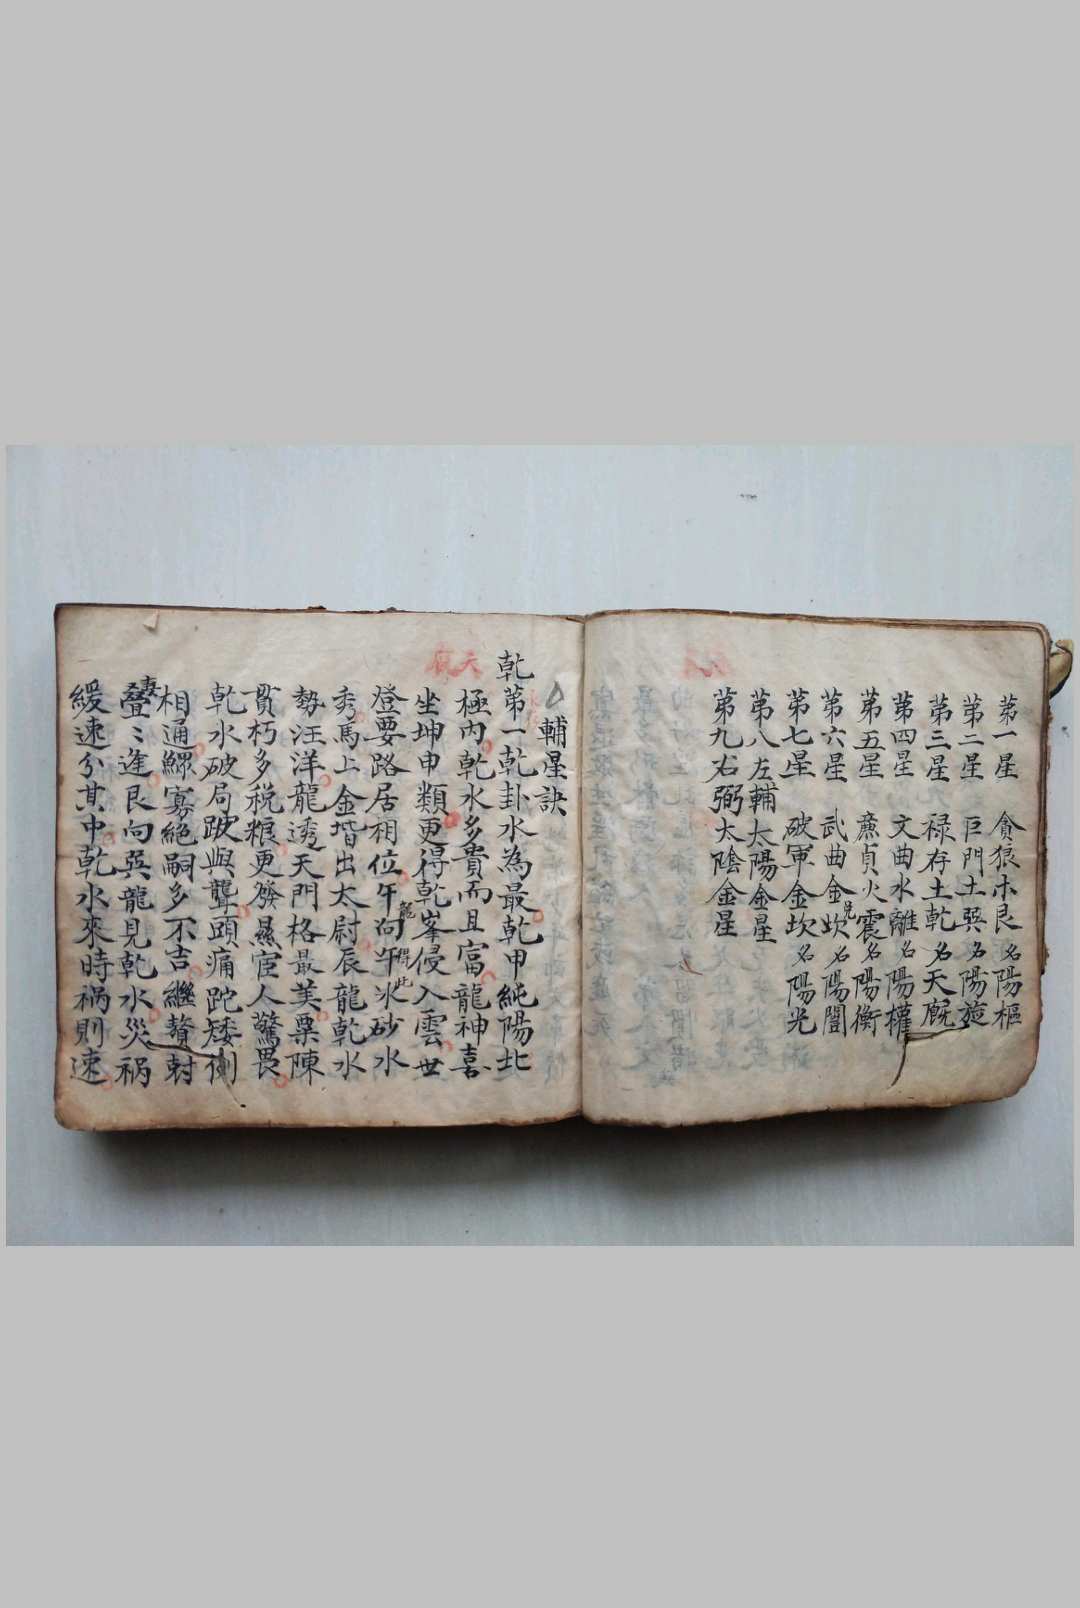 第一星 貪狼木艮名陽樞
第二星 巨門土巽名陽旋
第三星 祿存土乾名天
第四星 文曲水離名陽權
第五星 廉貞火震名陽衡
第六星 武曲金兌名陽闓
第七星 破軍金坎名陽光
第八左輔太陽金星
第九右弼太陰金星
輔星訣
乾第一乾卦水為最乾甲純陽北
極內乾水多貴而且富龍神喜
坐坤申類更得乾峯侵入雲世
登要路居相位午向午水砂水
龍 得此
秀馬上金堦出太尉辰龍乾水
勢汪洋龍透天門格最美粟陳
貫朽多税粮更發顯宦人驚畏
乾水破局跛與聾頭痛跎矮側
相通鰥寡絕嗣多不吉繼贅尅
妻疊〻逢艮向巽龍見乾水災禍
緩速分其中乾水來時禍則速
天